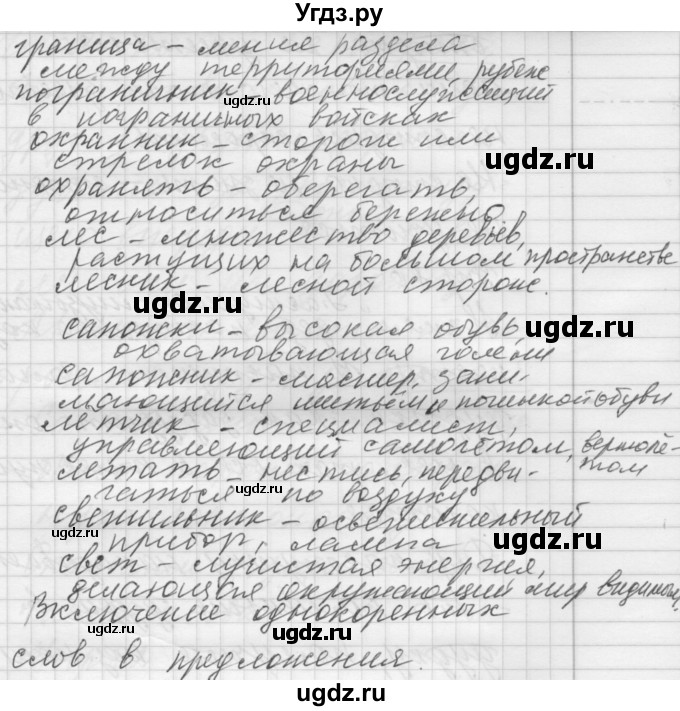 Угдз.ру
граница – линия раздела
между территориями, рубеж
пограничник – военнослужащий
в пограничных войсках
охранник – сторож или
стрелок охраны
охранять – оберегать,
относиться бережно
лес – множество деревьев,
растущих на большом пространстве
лесник – лесной сторож.
сапожки – высокая обувь,
охватывающая голени
сапожник – мастер, зани-
мающийся шитьём и починкой обуви
лётчик – специалист,
управляющий самолётом, вертолё-
том
летать – нестись, передви-
гаться по воздуху
светильник – осветительный
прибор, лампа
свет – лучистая энергия,
делающая окружающий мир видимым.
Включение однокоренных
слов в предложения.
ugdz.ru
ugdz.ru
ugdz.ru
ugdz.ru
ugdz.ru
ugdz.ru
ugdz.ru
ugdz.ru
ugdz.ru
ugdz.ru
ugdz.ru
ugdz.ru
ugdz.ru
ugdz.ru